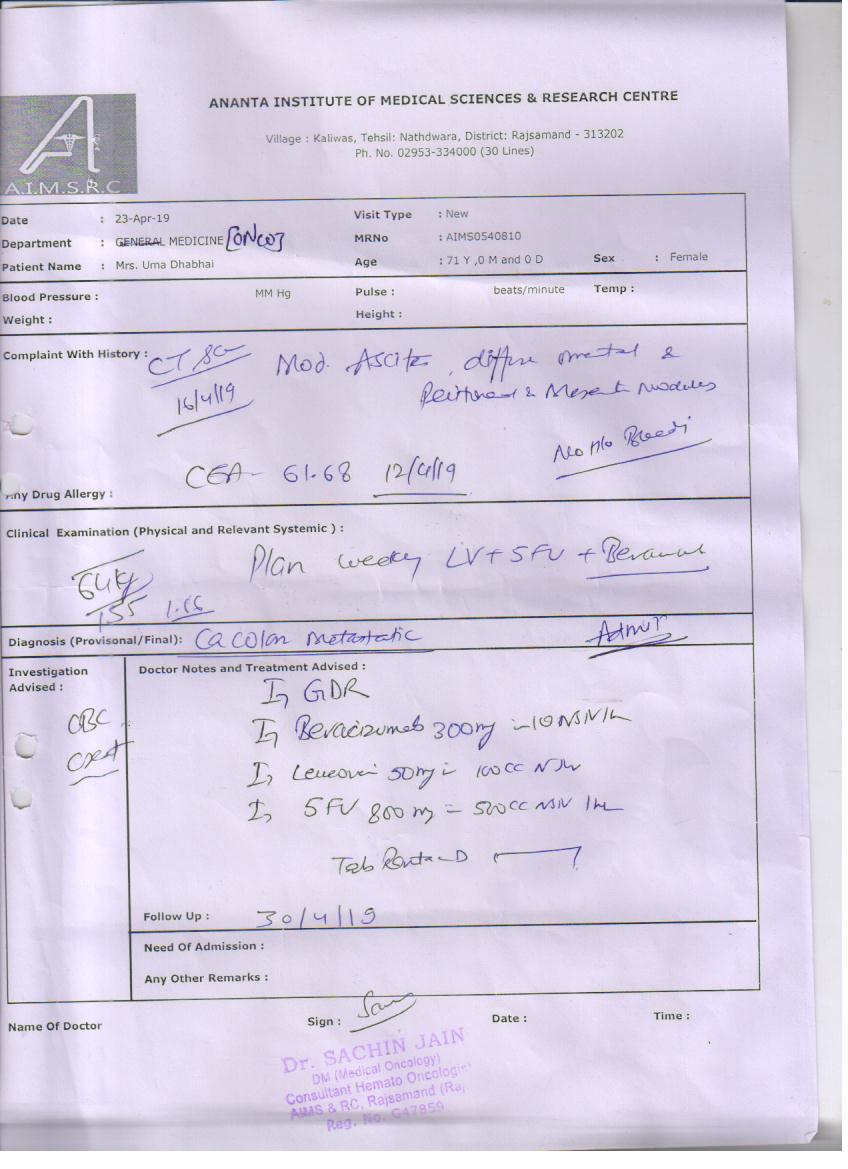 ANANTA INSTITUTE OF MEDICAL SCIENCES & RESEARCH CENTRE
Village : Kaliwas, Tehsil: Nathdwara, District: Rajsamand - 313202
Ph. No. 02953-334000 (30 Lines)
A.I.M.S.R.C
Date : 23-Apr-19 Visit Type : New
Department : GENERAL MEDICINE [ONCO] MRNo : AIMS0540810
Patient Name : Mrs. Uma Dhabhai Age : 71 Y ,0 M and 0 D Sex : Female
Blood Pressure : MM Hg Pulse : beats/minute Temp :
Weight : Height :
Complaint With History : CT Mod. Ascites, diffuse omental &
16/4/19 & Nodules
No H/o
CEA - 61.68 12/4/19
Any Drug Allergy :
Clinical Examination (Physical and Relevant Systemic ) :
Plan weekly LV + 5FU +
64 kg
155 1.66
Diagnosis (Provisonal/Final): Ca Colon metastatic Admit
Investigation Advised : Doctor Notes and Treatment Advised :
CBC
GDR
Bevacizumab 300mg
50mg 100cc
5FU 800 mg 500cc
Tab
Follow Up : 30/4/19
Need Of Admission :
Any Other Remarks :
Name Of Doctor Sign : Date : Time :
Dr. SACHIN JAIN
DM (Medical Oncology)
Consultant Hemato Oncologis
AIMS & RC, Rajsamand (Raj
Reg. No. G47859